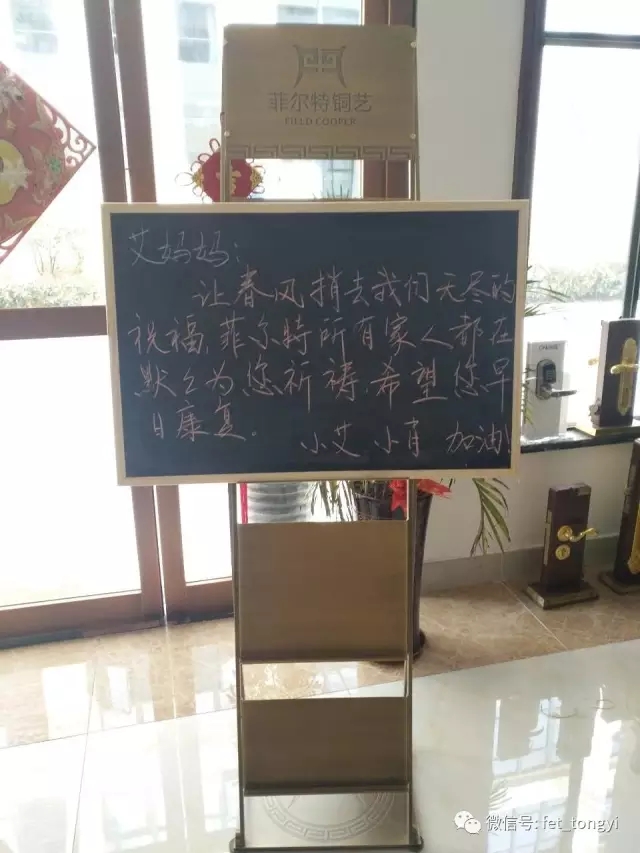 菲尔特铜艺
FILLD COOPER
艾妈妈:
让春风捎去我们无尽的
祝福,菲尔特所有家人都在
默々为您祈祷,希望您早
日康复。
小艾 小肖 加油!
微信号: fet_tongyi